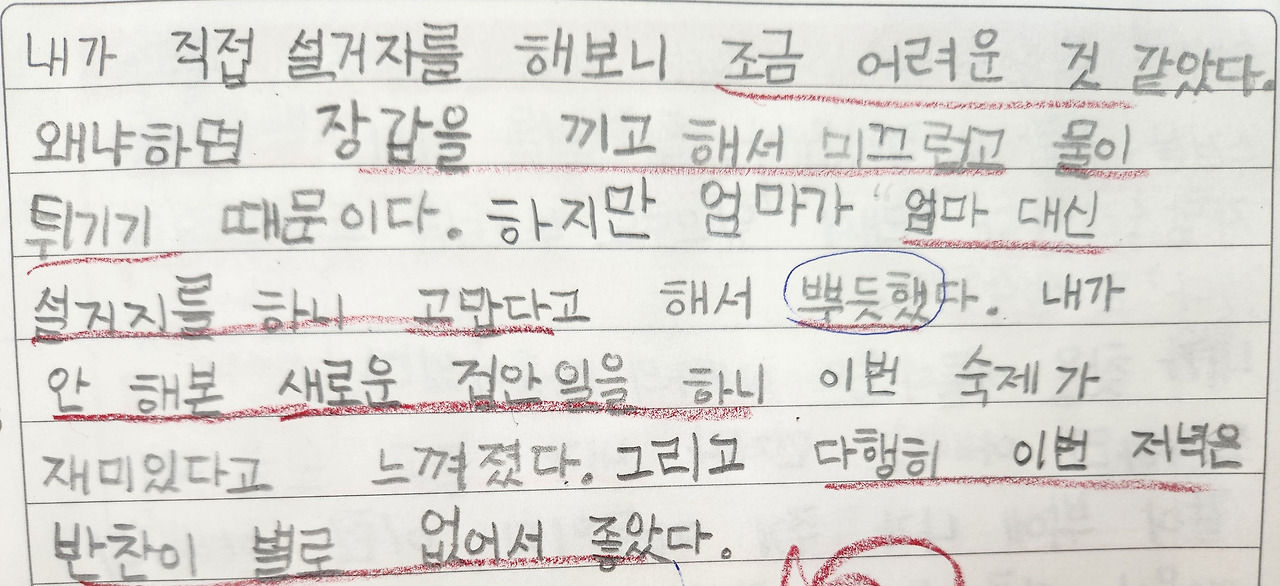 내가 직접 설거자를 해보니 조금 어려운 것 같았다.
왜냐하면 장갑을 끼고 해서 미끄럽고 물이
튀기기 때문이다. 하지만 엄마가 “엄마 대신
설지지를 하니 고맙다고 해서 뿍듯했다. 내가
안 해본 새로운 집안일을 하니 이번 숙제가
재미있다고 느껴졌다. 그리고 다행히 이번 저녁은
반찬이 별로 없어서 좋았다.